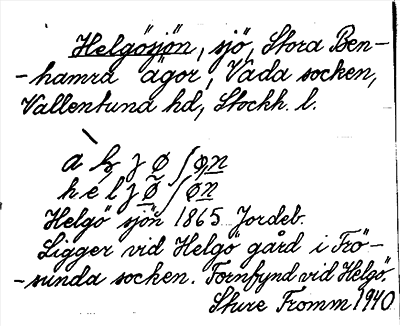 Helgösjön, sjö, Stora Ben-
-hamra ägor, Vada socken,
Vallentuna hd, Stockh. l.
h e l j ø ʃ ø n
Helgö sjön 1865 Jordeb.
Ligger vid Helgö gård i Frö-
-sunda socken. Fornfynd vid Helgö.
Sture Fromm 1940